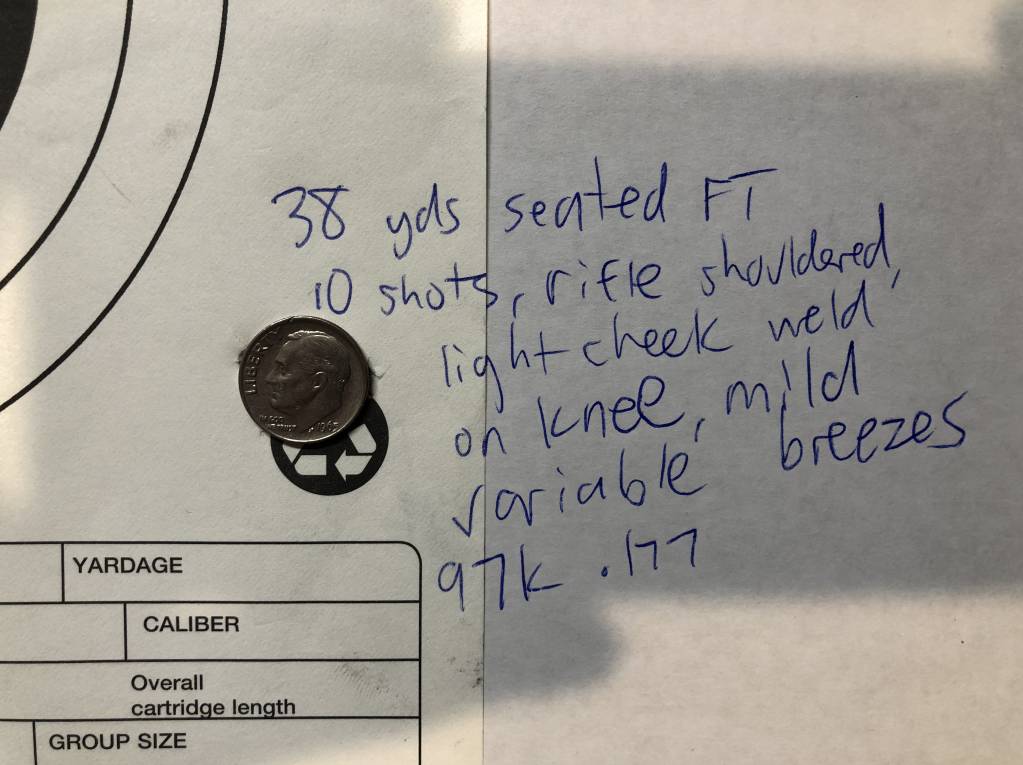 38 yds seated FT
10 shots, rifle shouldered,
light cheek weld
on knee, mild
variable breezes
97k .177
LIBERTY
YARDAGE
CALIBER
Overall
cartridge length
GROUP SIZE